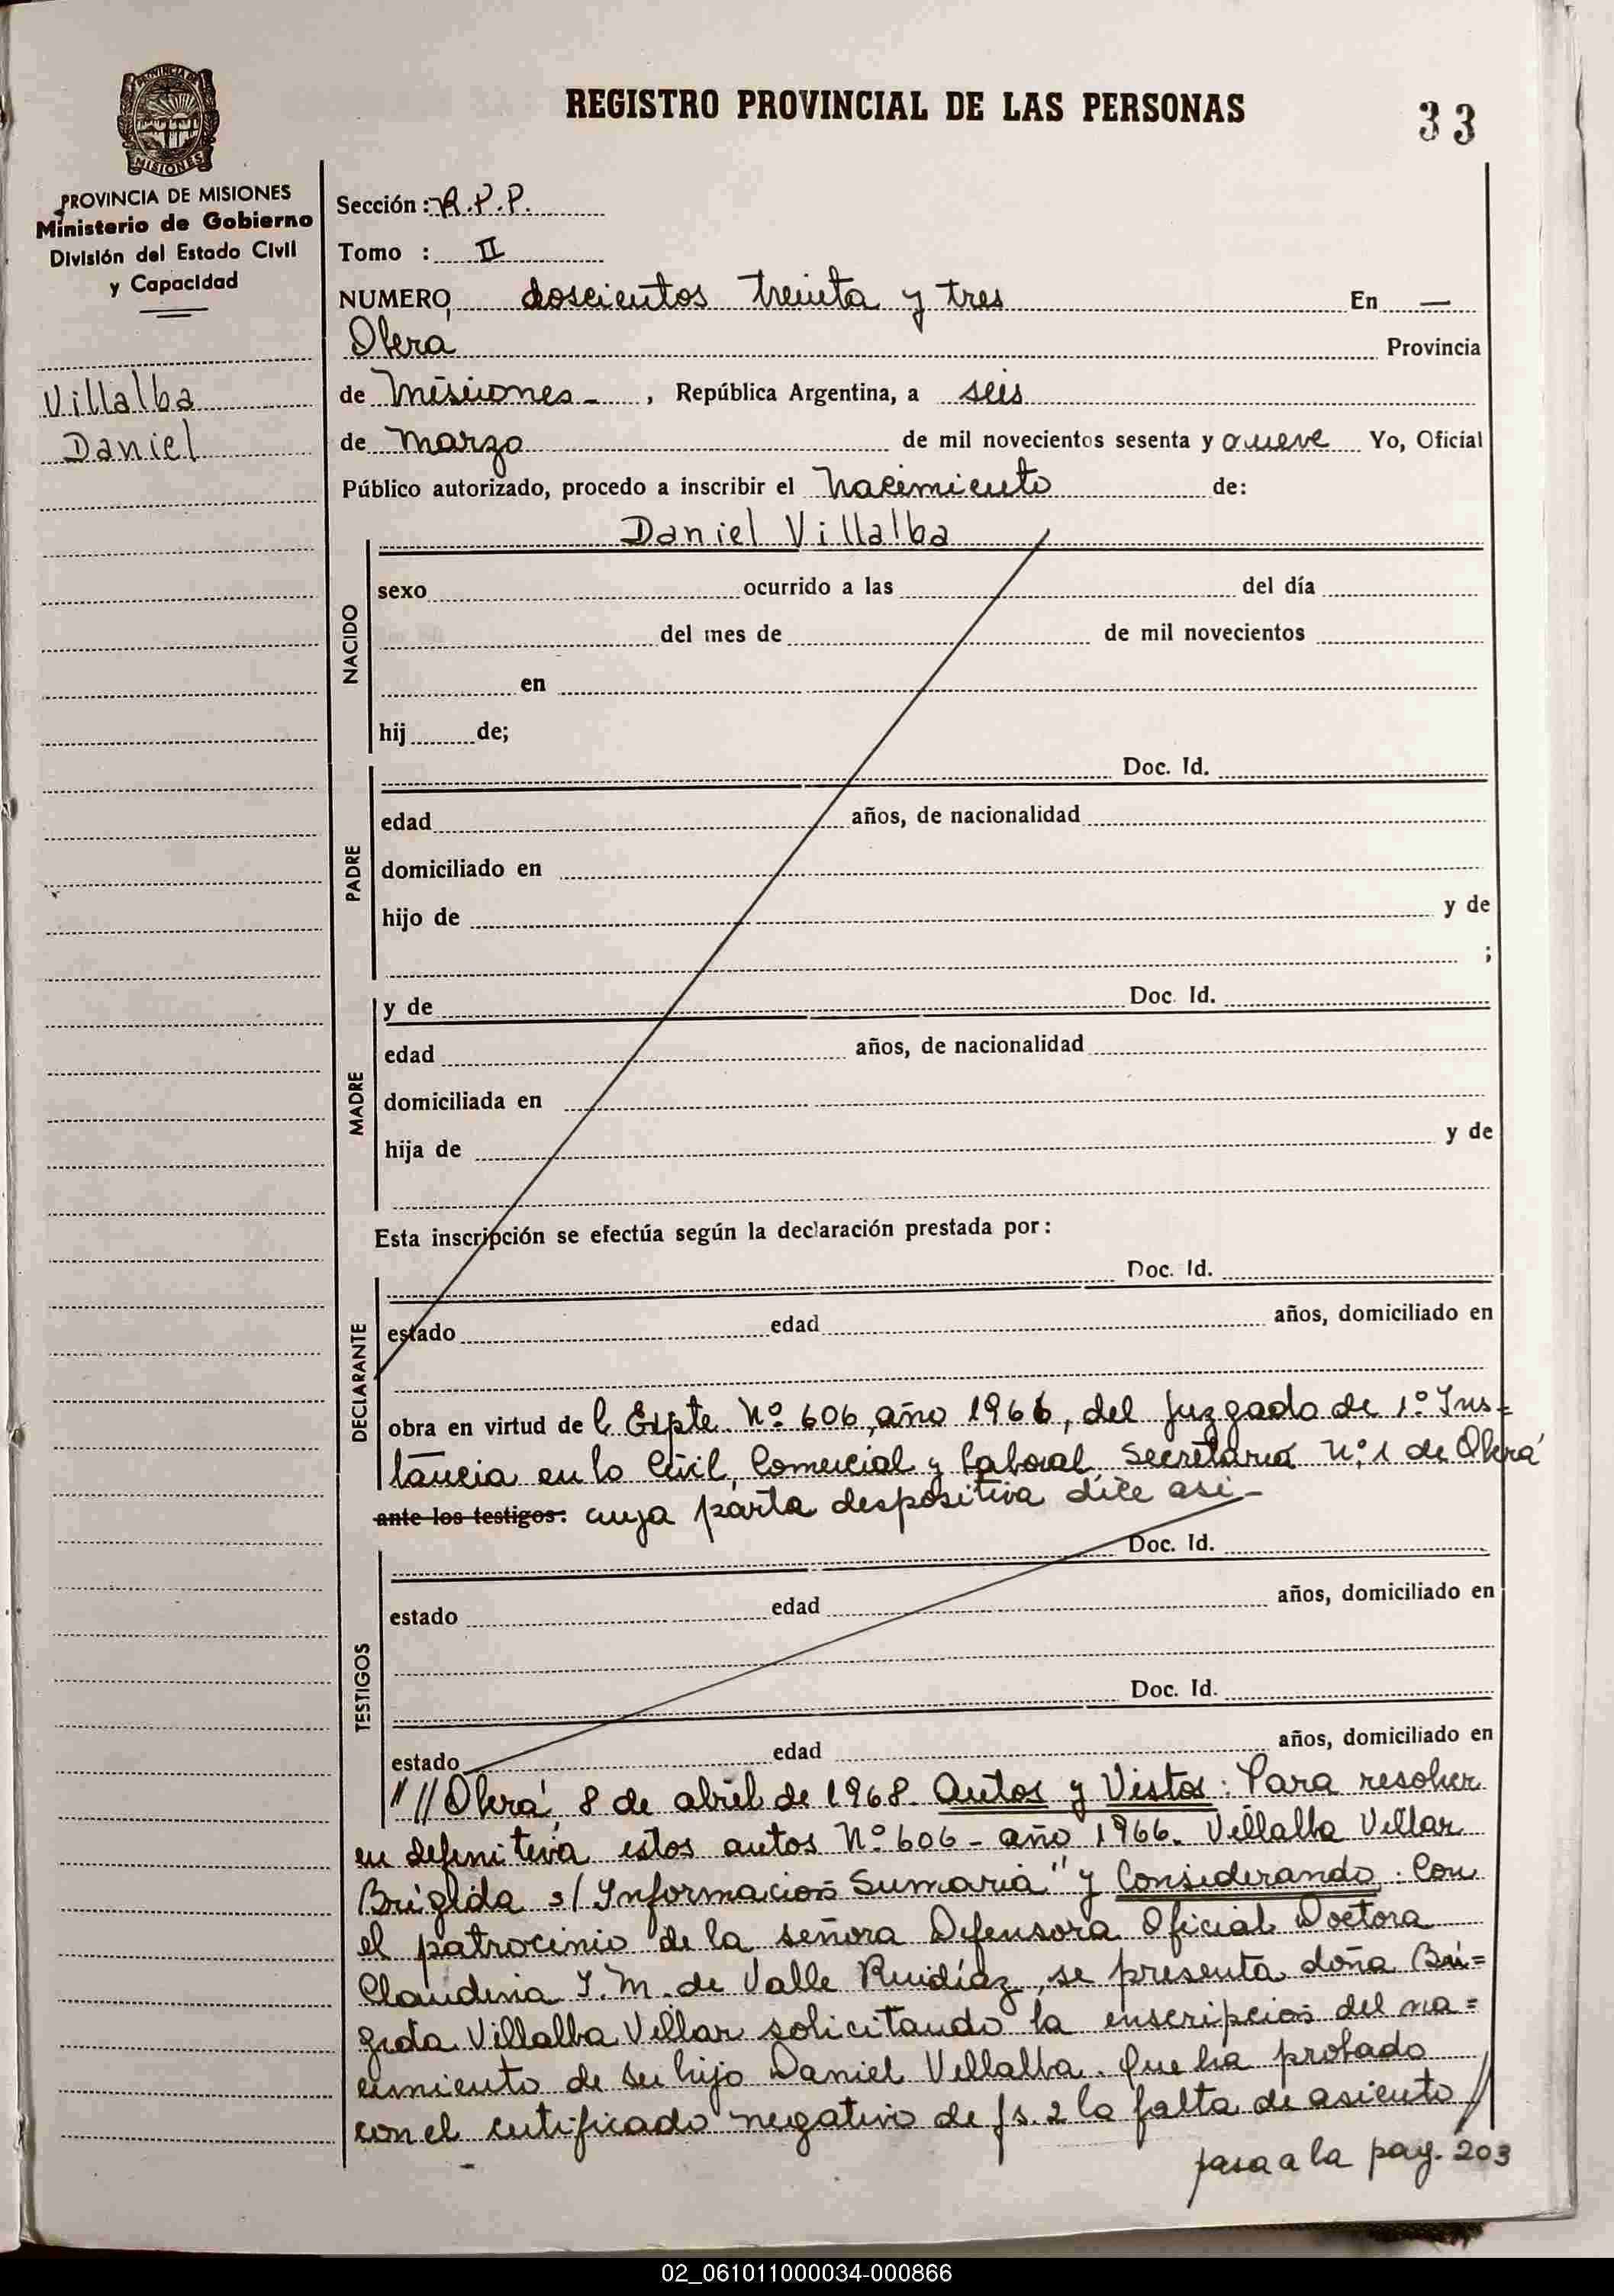 REGISTRO PROVINCIAL DE LAS PERSONAS
33
PROVINCIA DE MISIONES
PROVINCIA DE MISIONES
Ministerio de Gobierno
División del Estado Civil
y Capacidad
Villalba
Daniel
Sección: R.P.P.
Tomo : II
NUMERO, doscientos treinta y tres En —
Obera Provincia
de Misiones - , República Argentina, a seis
de marzo de mil novecientos sesenta y nueve Yo, Oficial
Público autorizado, procedo a inscribir el nacimiento de:
Daniel Villalba
NACIDO
sexo ocurrido a las del día
del mes de de mil novecientos
en
hij de;
Doc. Id.
PADRE
edad años, de nacionalidad
domiciliado en
hijo de y de
;
MADRE
y de Doc. Id.
edad años, de nacionalidad
domiciliada en
hija de y de
Esta inscripción se efectúa según la declaración prestada por:
Doc. Id.
DECLARANTE
estado edad años, domiciliado en
obra en virtud de l Expte. Nº 606, año 1966, del Juzgado de 1º Ins=
tancia en lo Civil, Comercial y Laboral, Secretaria Nº 1 de Oberá
ante los testigos: cuya parta despositiva dice asi-
Doc. Id.
TESTIGOS
estado edad años, domiciliado en
Doc. Id.
estado edad años, domiciliado en
"// Oberá, 8 de abril de 1968. Autos y Vistos: Para resolver
en definitiva estos autos Nº 606 - año 1966. Villalba Villar
Brígida s/ Información Sumaria" y Considerando: Con
el patrocinio de la señora Defensora Oficial Doctora
Claudina I. M. de Valle Ruidíaz, se presenta doña Brí=
gida Villalba Villar solicitando la inscripción del na=
cimiento de su hijo Daniel Villalba. Que ha probado
con el certificado negativo de fs. 2 la falta de asiento //
pasa a la pag. 203
02_061011000034-000866